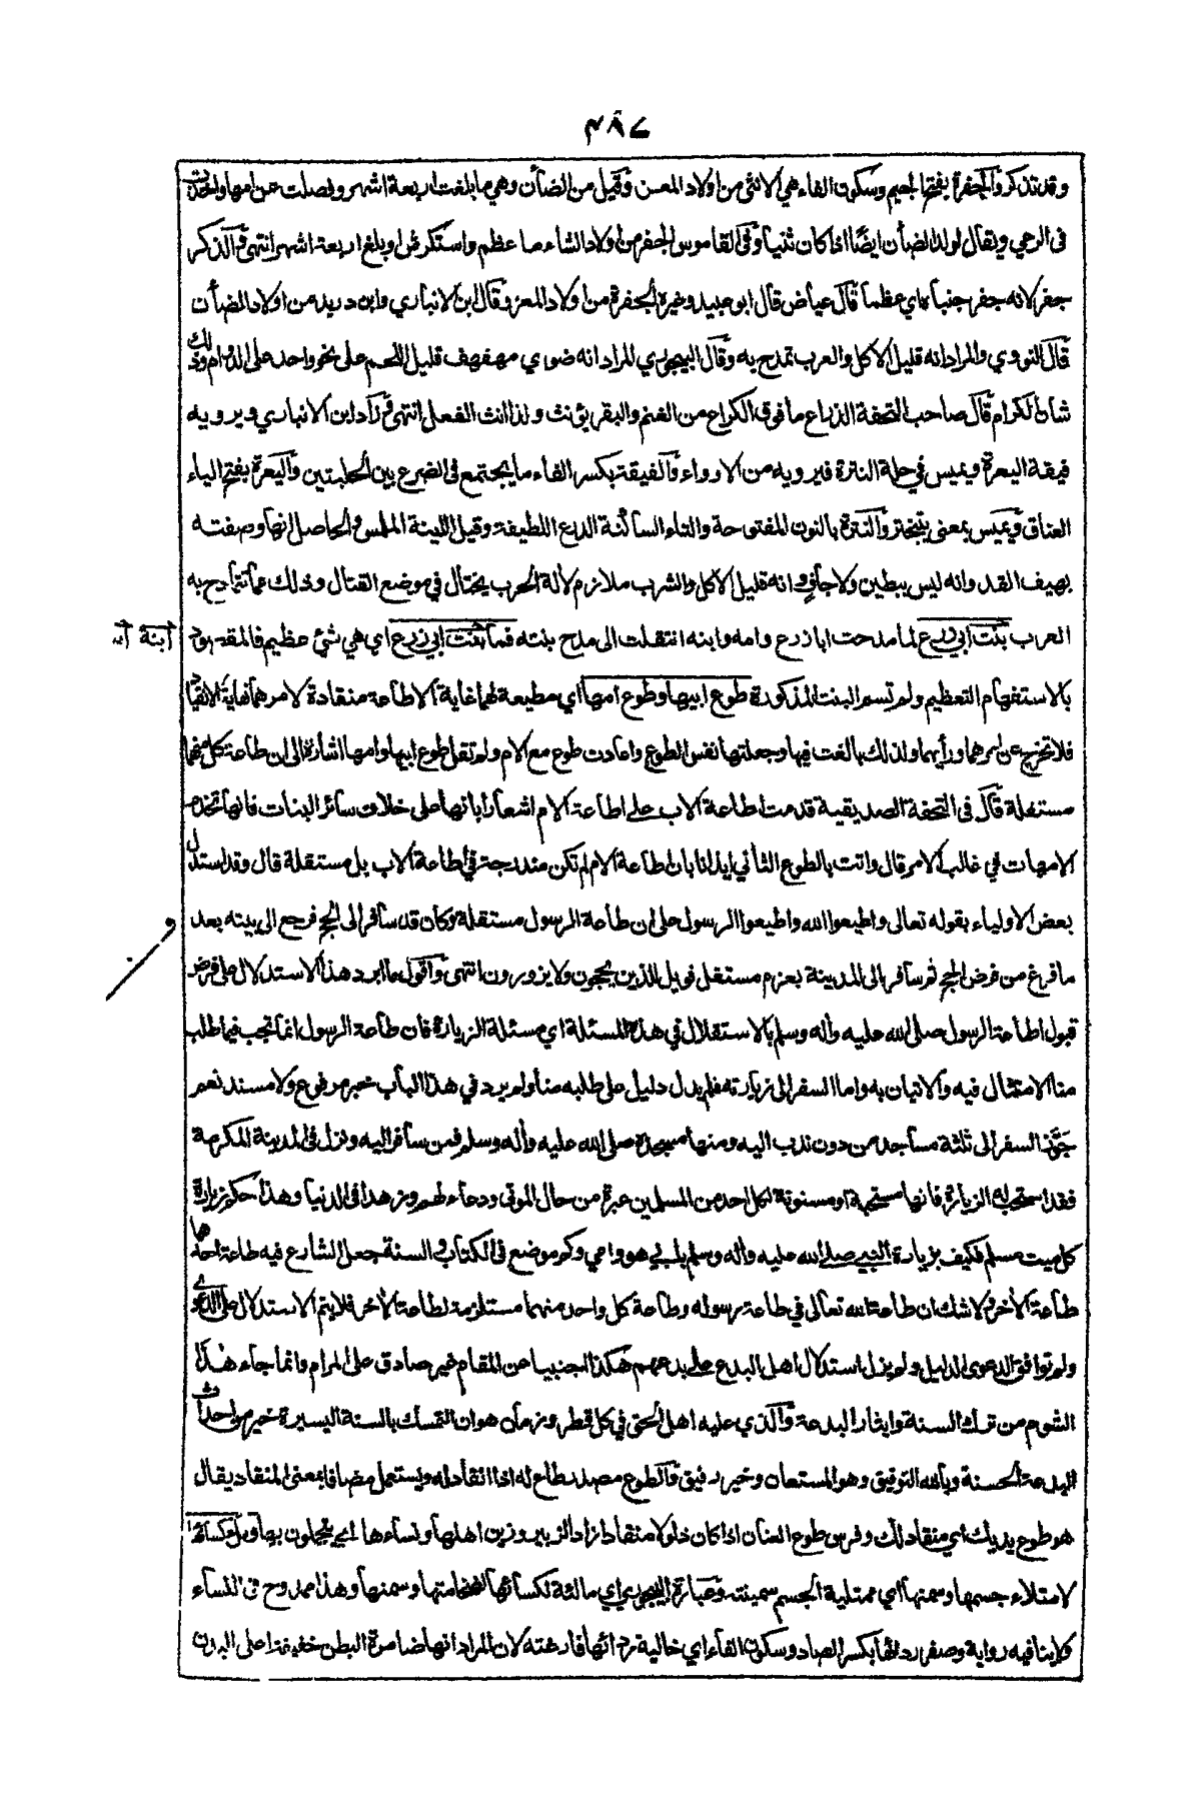 ٤٨٧
وقد تذكر والجفرة بفتح الجيم وسكون الفاء هي الانثى من اولاد المعز وقيل من الضأن وهي ما بلغت اربعة اشهر وفصلت عن امها واخذت
فى الرعي ويقال لولد الضأن ايضًا اذا كان ثنيا وفى القاموس الجفر من اولاد الشاء ما عظم واستكرش او بلغ اربعة اشهر انتهى والذكر
جفر لانه جفر جنباه اي عظما قال عياض قال ابو عبيد وغيره الجفرة من اولاد المعز وقال ابن الانباري وابن دريد من اولاد الضأن
قال النووي والمراد انه قليل الاكل والعرب تمدح به وقال البيجوري المراد انه ضوي مهفهف قليل اللحم على نحو واحد على الدوام وذلك
شان الكرام قال صاحب التحفة الذراع ما فوق الكراع من الغنم والبقر يؤنث ولذا انث الفعل انتهى وزاد ابن الانباري ويرويه
فيقة اليعرة ويميس في حلة النترة فيرويه من الارواء والفيقة بكسر الفاء ما يجتمع فى الضرع بين الحلبتين واليعرة بفتح الياء
العناق ويميس بمعنى يتبختر والنترة بالنون المفتوحة والتاء الساكنة الدرع اللطيفة وقيل اللينة الملمس والحاصل انها وصفته
بهيف القد وانه ليس ببطين ولا جاف وانه قليل الاكل والشرب ملازم لالة الحرب يختال في موضع القتال وذلك مما تتمادح به
العرب بنت ابي زرع لما مدحت ابا زرع وامه وابنه انتقلت الى مدح بنته فما بنت ابي زرع اي هي شئ عظيم فالمقصود
ابنة
بالاستفهام التعظيم ولم تسم البنت المذكورة طوع ابيها وطوع امها اي مطيعة لهما غاية الاطاعة منقادة لامرهما غاية الانقياد
فلا تخرج عن امرهما ورأيهما ولذلك بالغت فيها وجعلتها نفس الطوع واعادت طوع مع الام ولم تقل طوع ابيها وامها اشارة الى ان طاعة كل منهما
مستقلة قال فى التحفة الصديقية قدمت اطاعة الاب على اطاعة الام اشعارا بانها على خلاف سائر البنات فانها تخدم
الامهات في غالب الامر قال واتت بالطوع الثاني ايذانا بان اطاعة الام لم تكن مندرجة في اطاعة الاب بل مستقلة قال وقد استدل
بعض الاولياء بقوله تعالى واطيعوا الله واطيعوا الرسول على ان طاعة الرسول مستقلة وكان قد سافر الى الحج فرجع الى بيته بعد
و
ما فرغ من فرض الحج ثم سافر الى المدينة بعزم مستقل فويل للذين يحجون ولا يزورون انتهى واقول ما ابرد هذا الاستدلال على فرض
قبول اطاعة الرسول صلى الله عليه واله وسلم بالاستقلال في هذه المسئلة اي مسئلة الزيارة فان طاعة الرسول انما تجب فيما طلب
منا الامتثال فيه والاتيان به واما السفر الى زيارته فلم يدل دليل على طلبه منا ولم يرد في هذا الباب خبر مرفوع ولا مسند نعم
جوز السفر الى ثلثة مساجد من دون ندب اليه ومنها مسجده صلى الله عليه واله وسلم فمن سافر اليه ونزل فى المدينة المكرمة
فقد استحب له الزيارة فانها مستحبة او مسنونة لكل احد من المسلمين عبرة من حال الموتى ودعاء لهم وزهدا فى الدنيا وهذا حكم زيارة
كل ميت مسلم فكيف بزيارة النبي صلى الله عليه واله وسلم بابي هو وامي وكم موضع فى الكتاب و السنة جعل الشارع فيه طاعة احدهما
طاعة الاخر ولا شك ان طاعة الله تعالى في طاعة رسوله وطاعة كل واحد منهما مستلزمة لطاعة الاخر فلا يتم الاستدلال على الدعوى
ولم توافق الدعوى الدليل ولم يزل استدلال اهل البدع على بدعهم هكذا اجنبيا عن المقام غير صادق على المرام وانما جاء هذا
الشوم من ترك السنة وايثار البدعة والذي عليه اهل الحق في كل قطر وزمان هو ان التمسك بالسنة اليسيرة خير من احداث
البدعة الحسنة وبالله التوفيق وهو المستعان وخير رفيق والطوع مصدر طاع له اذا انقاد له ويستعمل مضافا بمعنى المنقاد يقال
هو طوع يديك اي منقاد لك وفرس طوع العنان اذا كان ذلولا منقادا زاد الزبير وزين اهلها ونساءها اي يتجملون بها وملء كسائها
لامتلاء جسمها وسمنها اي ممتلية الجسم سمينته وعبارة البيجوري اي مالئة لكسائها لضخامتها وسمنها وهذا ممدوح فى النساء
ولا ينافيه رواية وصفر ردائها بكسر الصاد وسكون الفاء اي خالية ردائها فارغته لان المراد انها ضامرة البطن خفيفة اعلى البدن